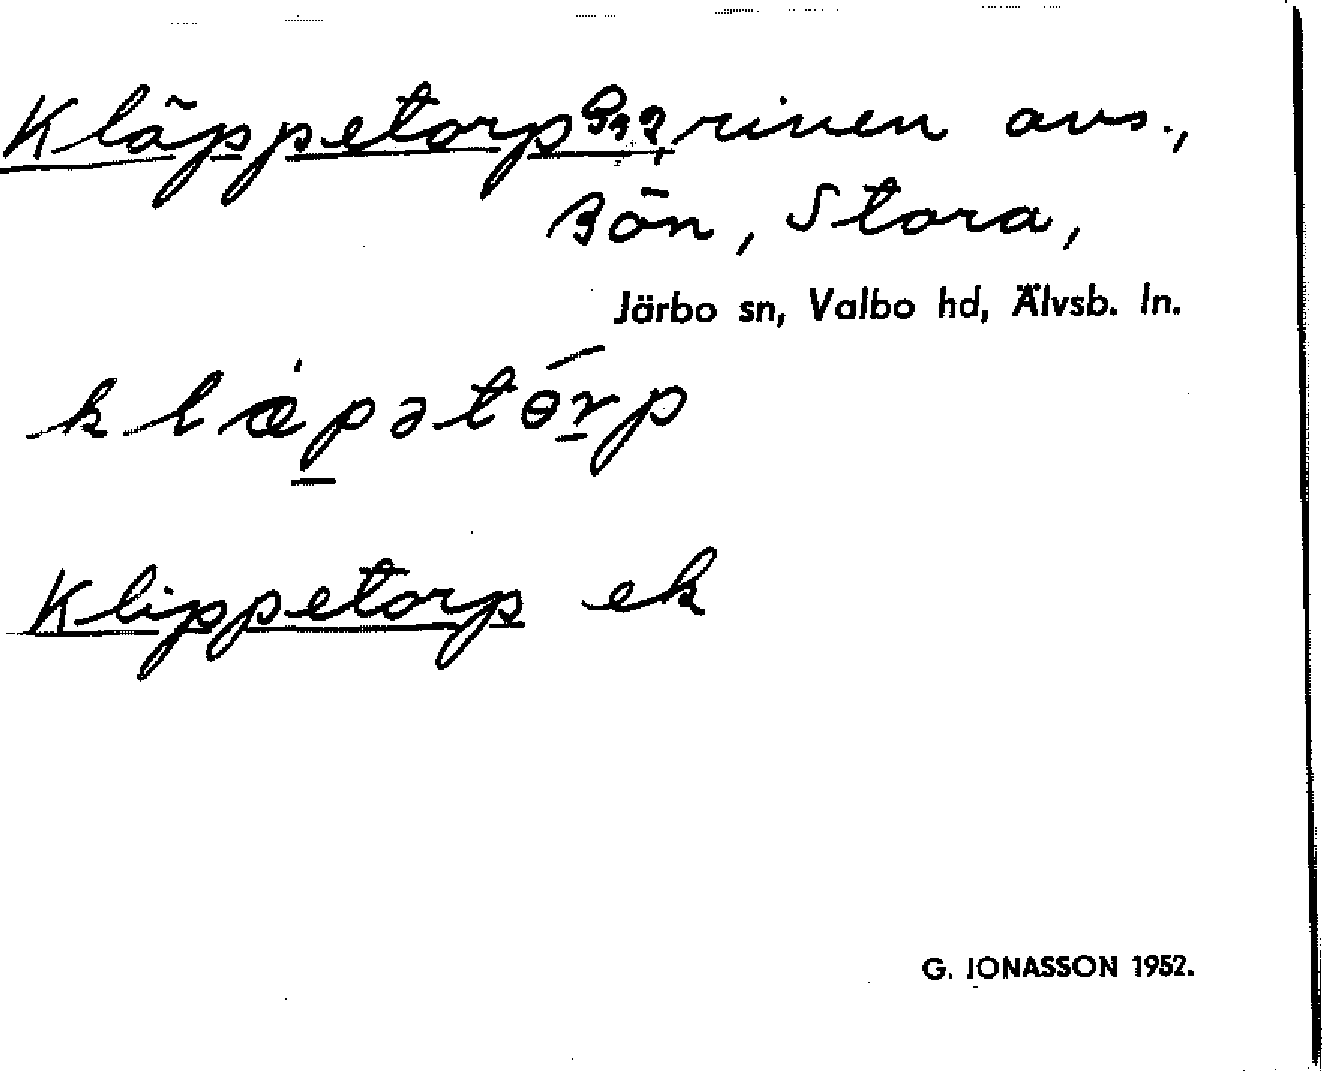 Kläppetorp, riven avs.,
Bön, Stora,
Järbo sn, Valbo hd, Älvsb. ln.
klæ̇pətɵ́rp
Klippetorp ek
G. JONASSON 1952.